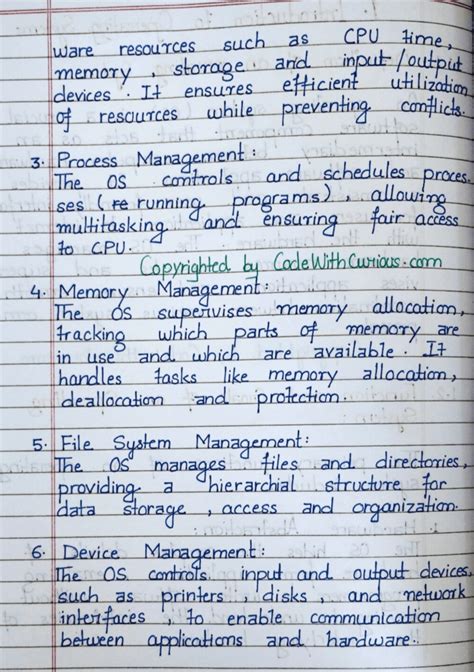 ware resources such as CPU time,
memory, storage and input/output
devices. It ensures efficient utilization
of resources while preventing conflicts.
3. Process Management:
The OS controls and schedules proces.
ses (re running programs), allowing
multitasking and ensuring fair access
to CPU.
Copyrighted by CodeWithCurious.com
4. Memory Management:
The OS supervises memory allocation,
tracking which parts of memory are
in use and which are available. It
handles tasks like memory allocation,
deallocation and protection.
5. File System Management:
The OS manages files and directories,
providing a hierarchial structure for
data storage, access and organization.
6. Device Management:
The OS controls input and output devices,
such as printers, disks and network
interfaces, to enable communication
between applications and hardware.